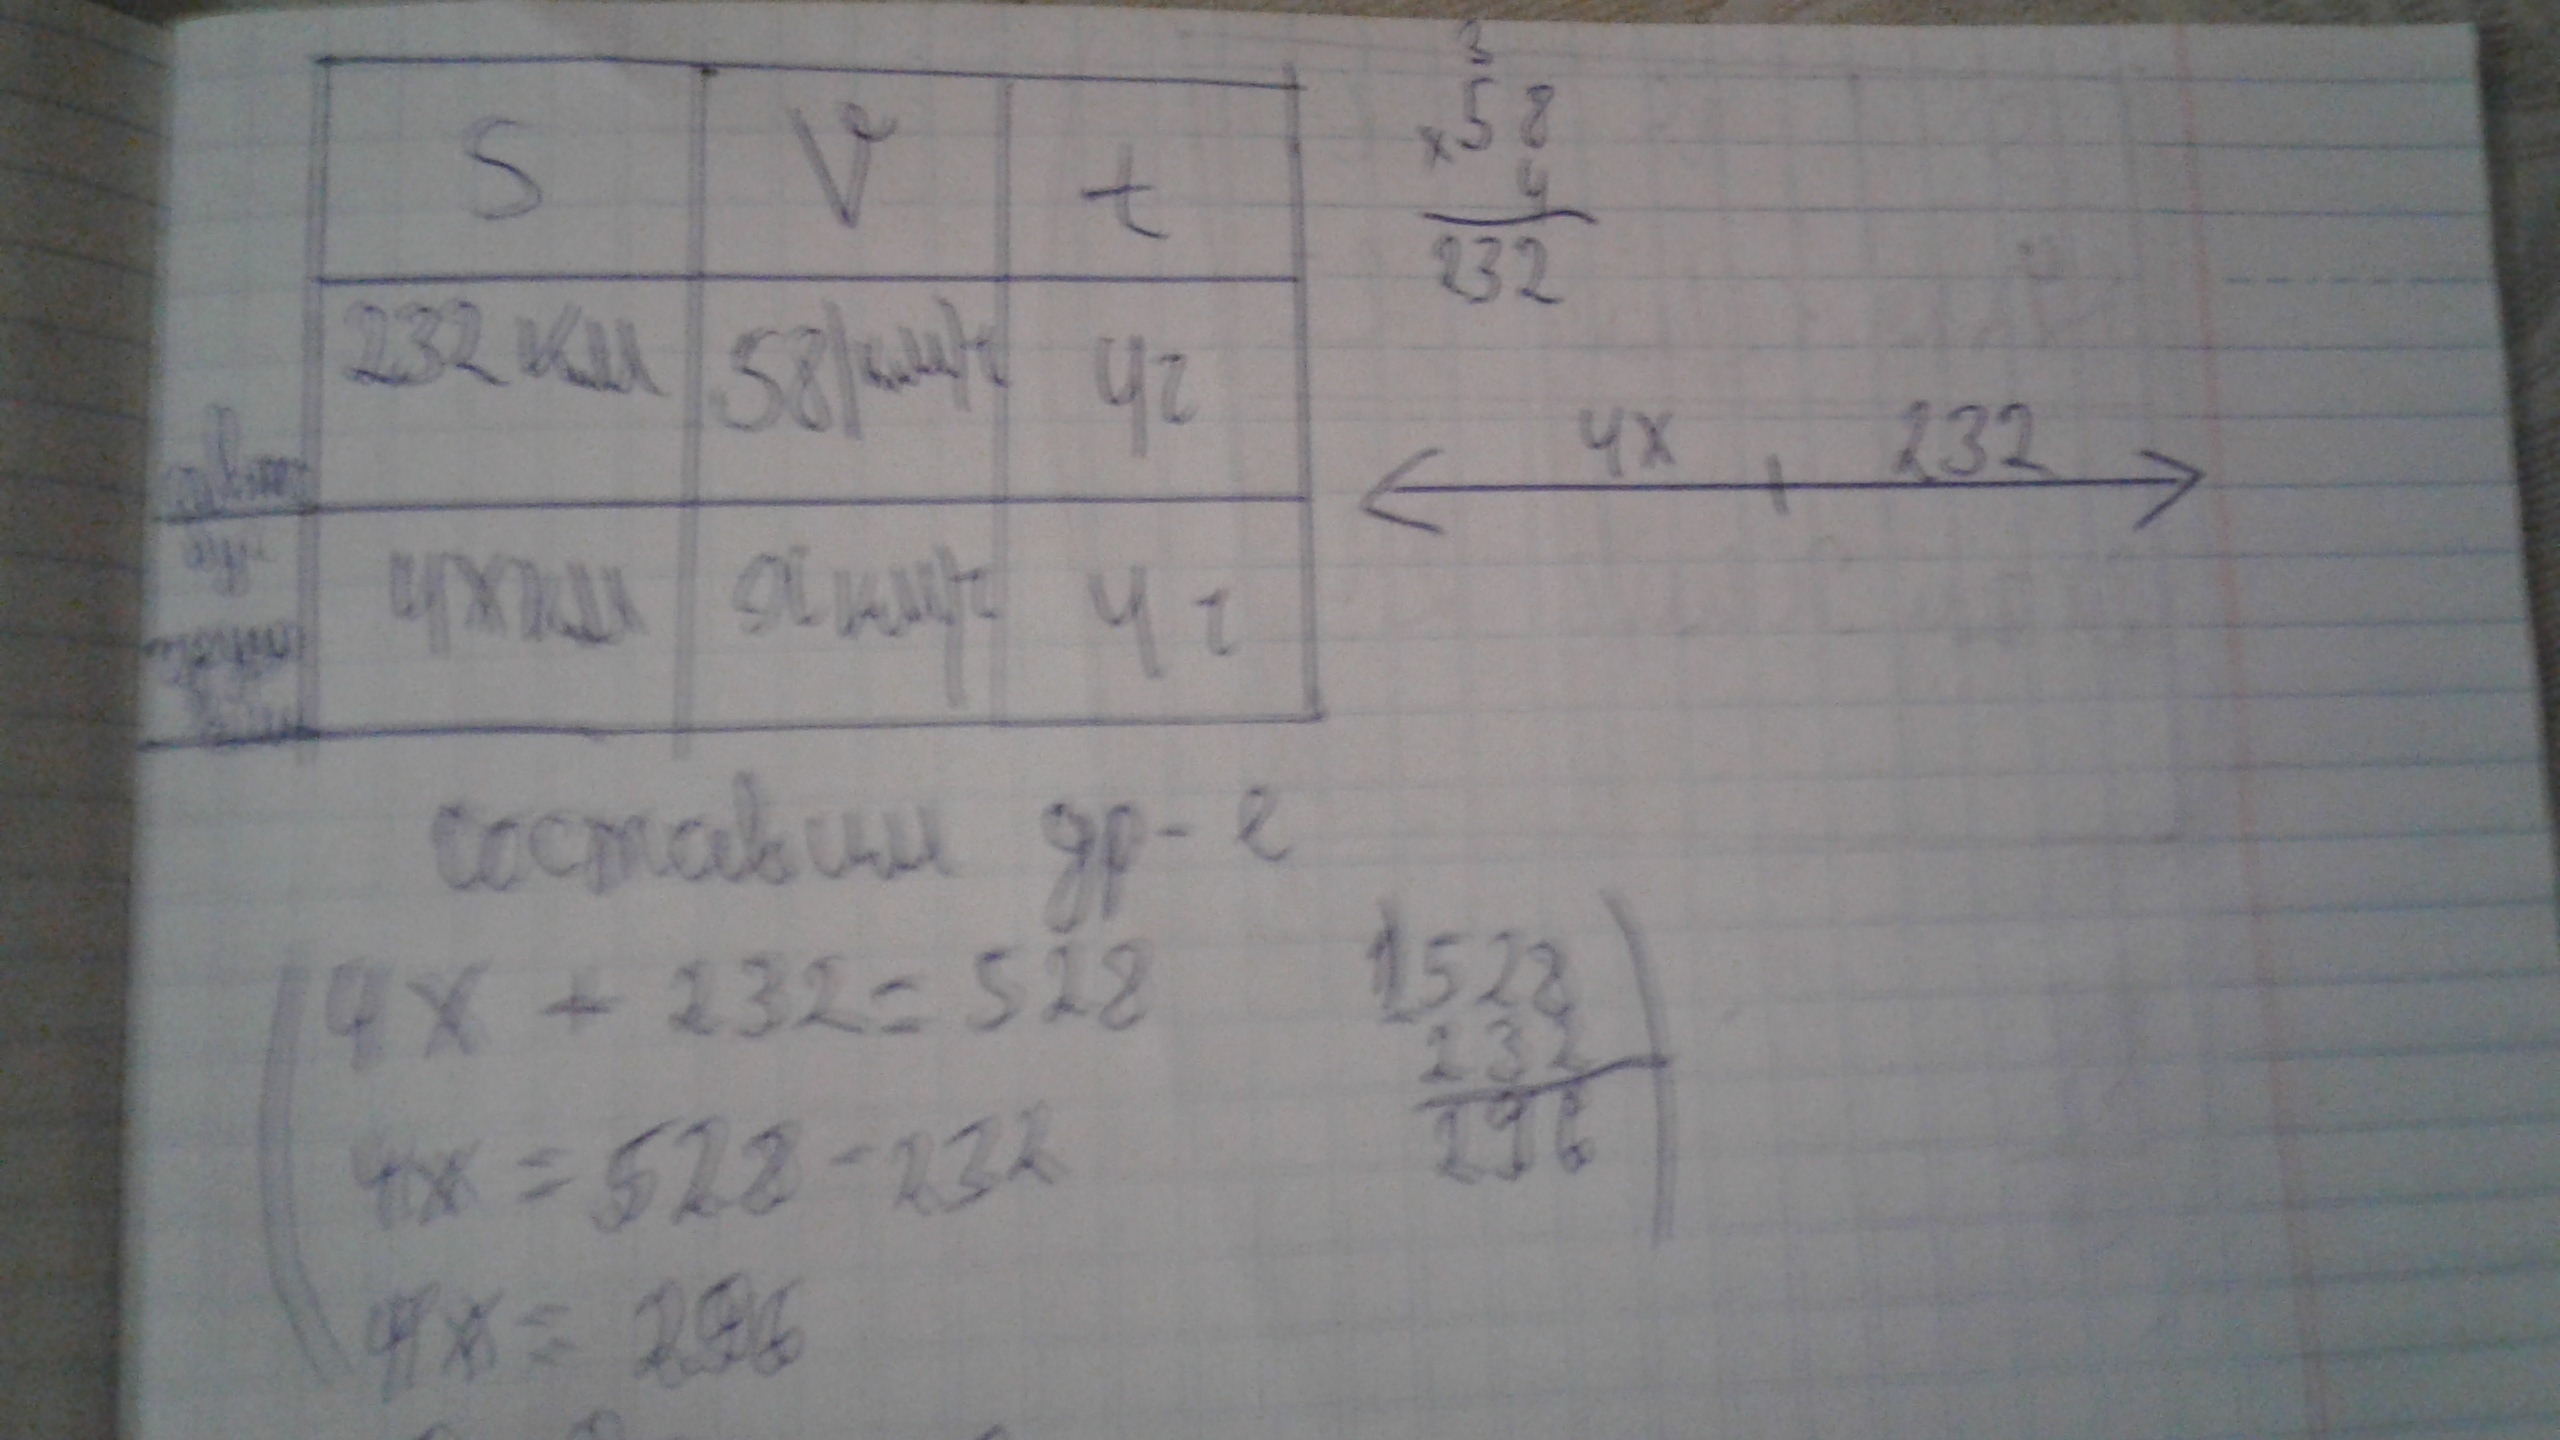 S V t
232 км 58 км/ч 4ч
4x км x км/ч 4 ч
3
58
× 4
232
4x 232
составим ур-е
4x + 232 = 528
4x = 528 - 232
4x = 296
1528
232
296